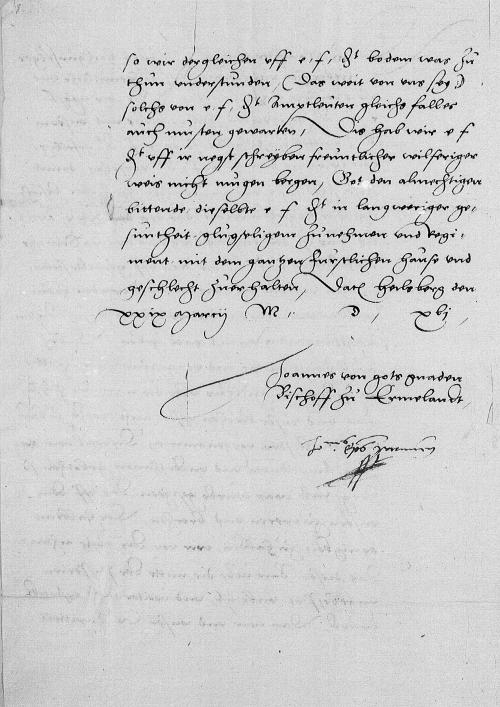 so wir dergleichen uff e. f. Dt bodem was zu
thun understunden, (das weit von uns sey)
solchs von e. f. Dt Amptleuten gleichs falles
auch musten gewarten, Dis hab wir e f
Dt uff ir negst schreyben freuntlicher wilferiger
weis nicht mugen bergen, Got den almechtigen
bittende, dieselbte e f Dt in langweriger ge-
suntheit glugseligem zunehmen und Regi-
ment mit dem gantzen furstlichen hause und
geschlecht zuerhalten, Dat. heilsberg den
xxix Marcij M. D. xlij.
Joannes von gots gnaden
Bischoff zu Ermelandt.